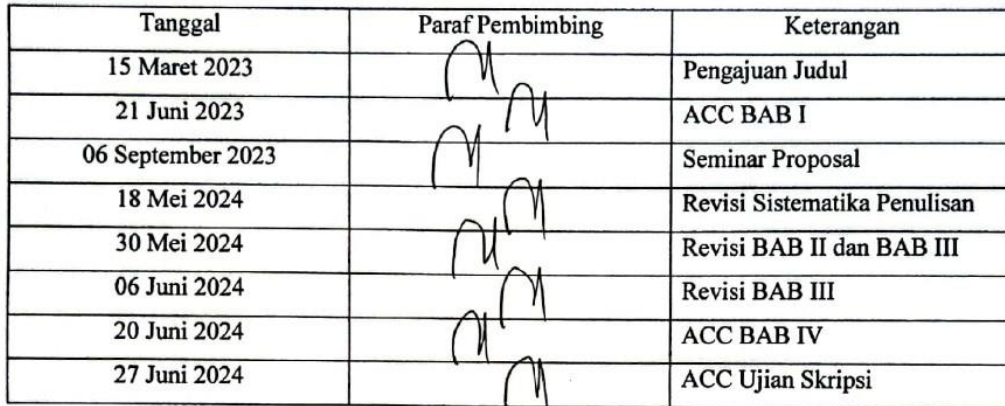 Tanggal Paraf Pembimbing Keterangan
15 Maret 2023 Pengajuan Judul
21 Juni 2023 ACC BAB I
06 September 2023 Seminar Proposal
18 Mei 2024 Revisi Sistematika Penulisan
30 Mei 2024 Revisi BAB II dan BAB III
06 Juni 2024 Revisi BAB III
20 Juni 2024 ACC BAB IV
27 Juni 2024 ACC Ujian Skripsi